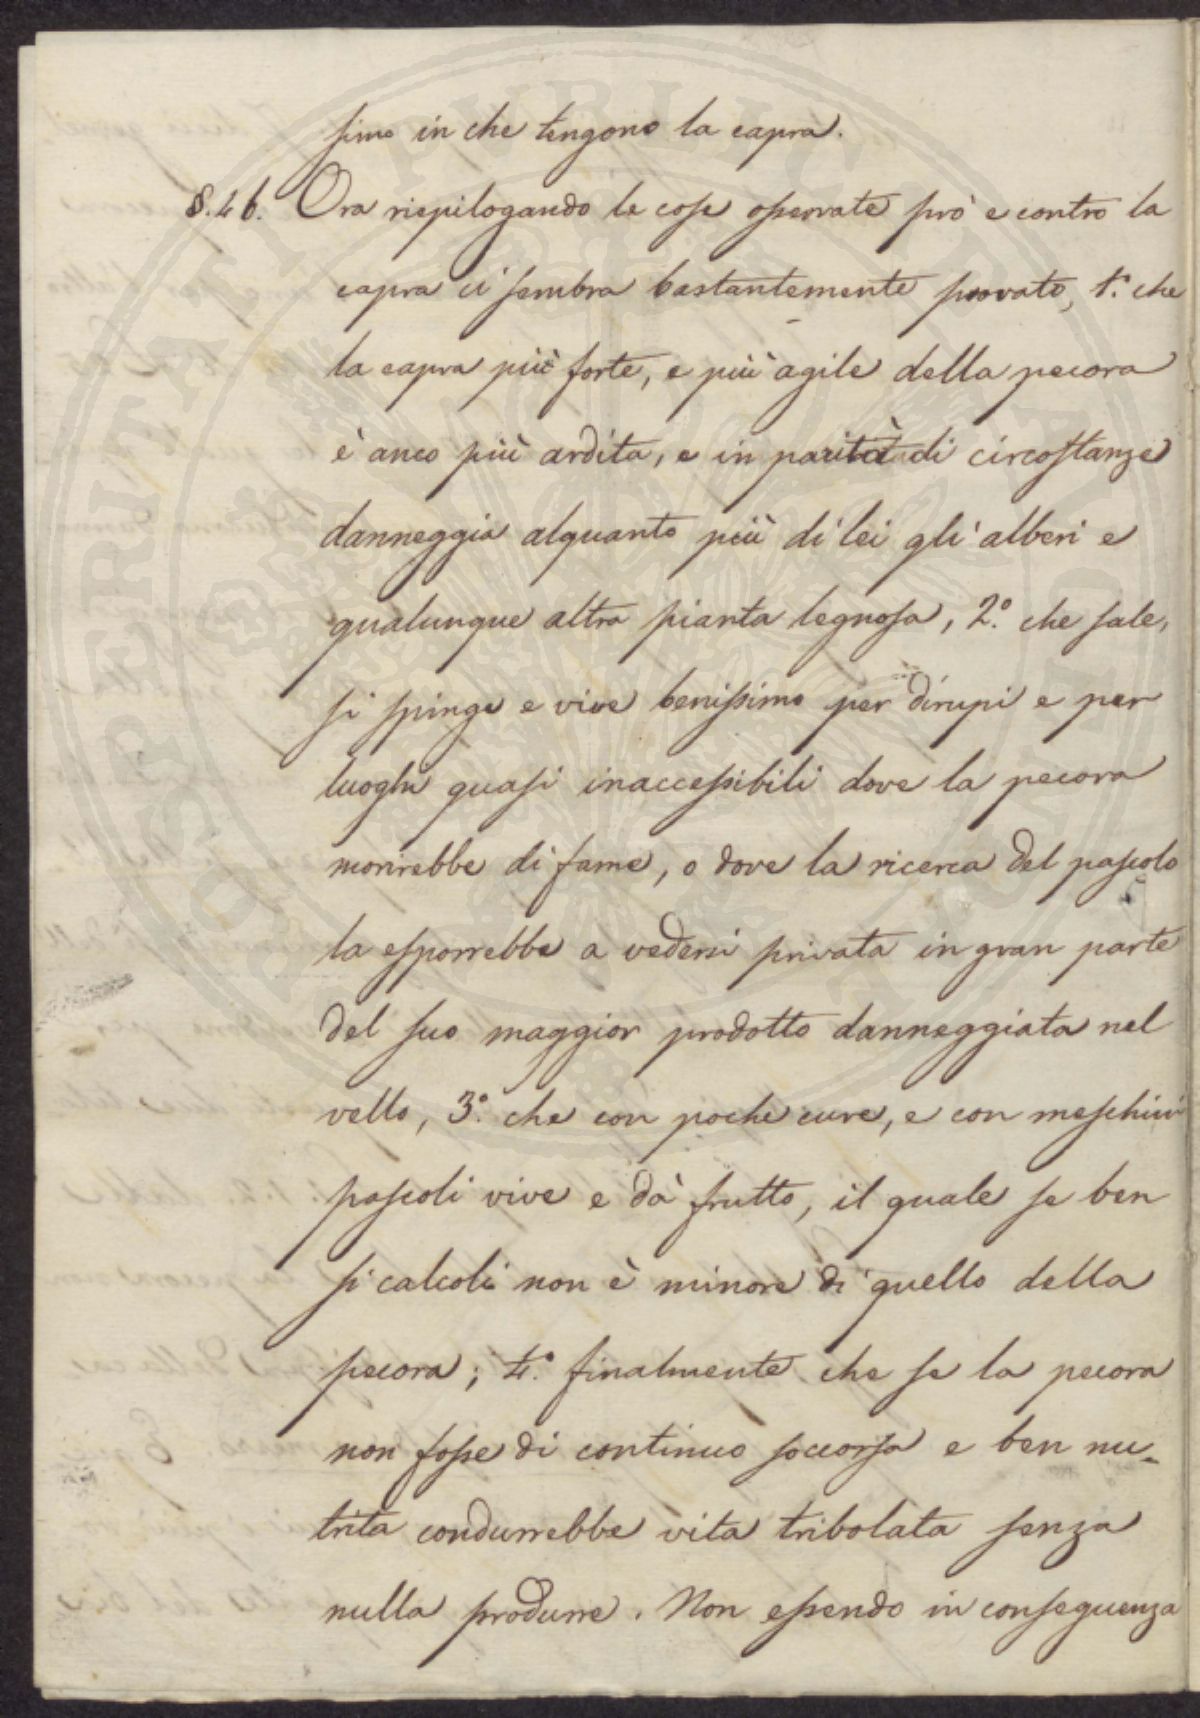 simo in che tengono la capra.
§. 46. Ora riepilogando le cose osservate prò e contro la
capra ci sembra bastantemente provato, 1.° che
la capra più forte, e più agile della pecora
è anco più ardita, e in parità di circostanze
danneggia alquanto più di lei gli alberi e
qualunque altra pianta legnosa, 2.° che sale,
si spinge e vive benissimo per dirupi e per
luoghi quasi inaccessibili dove la pecora
morirebbe di fame, o dove la ricerca del pascolo
la esporrebbe a vedersi privata in gran parte
del suo maggior prodotto danneggiata nel
vello, 3.° che con poche cure, e con meschini
pascoli vive e dà frutto, il quale se ben
si calcoli non è minore di quello della
pecora; 4.° finalmente che se la pecora
non fosse di continuo soccorsa e ben nu-
trita condurrebbe vita tribolata senza
nulla produrre. Non essendo in conseguenza